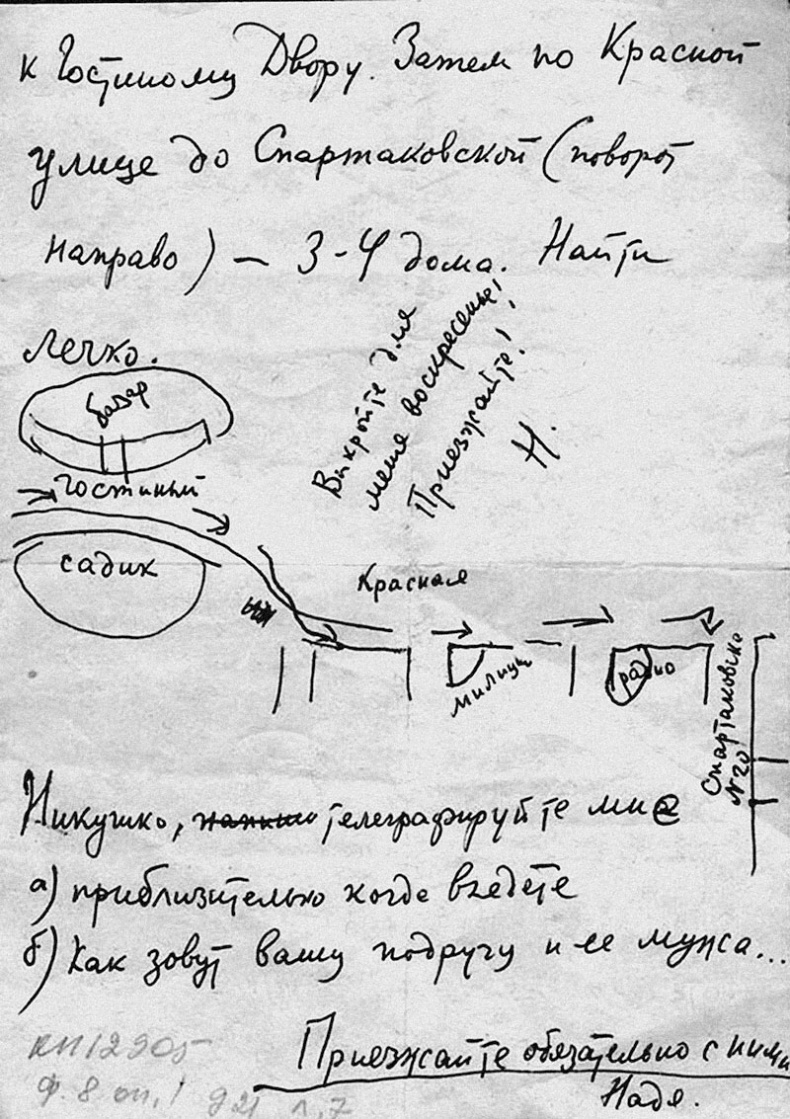 к Гостиному Двору. Затем по Красной
улице до Спартаковской (поворот
направо) — 3-4 дома. Найти
легко.
Выкройте для
меня воскресенье!
Приезжайте!
Н.
базар
Гостиный
садик
Красная
милиция
радио
Спартаковская
№20
Никушко, телеграфируйте мне
а) приблизительно когда въедете
б) Как зовут вашу подругу и ее мужа...
Приезжайте обязательно с ними
Надя.
КП 12905
Ф. 8 оп. 1 д 21 л. 7